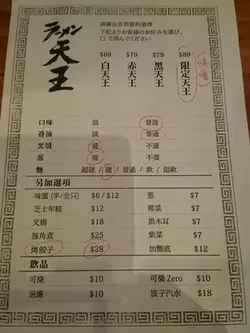 ラーメン
天王
請圈出您想要的選項
下記よりお客様のお好みを選び、
○で囲んでください
$69 $79 $79 $89
白天王 赤天王 黒天王 限定天王
口味 淡 普通
香油 淡 普通
叉燒 要 不要
蔥 要 不要
麵 超硬 / 硬 / 普通 / 軟 / 超軟
另加選項
味蛋 (半/全只) $6 / $12 蔥 $7
芝士年糕 $12 椰菜 $7
叉燒 $18 黑木耳 $7
豚角煮 $25 紫菜 $7
烤餃子 $28 加麵底 $12
飲品
可樂 $10 可樂 Zero $10
忌廉 $10 波子汽水 $18